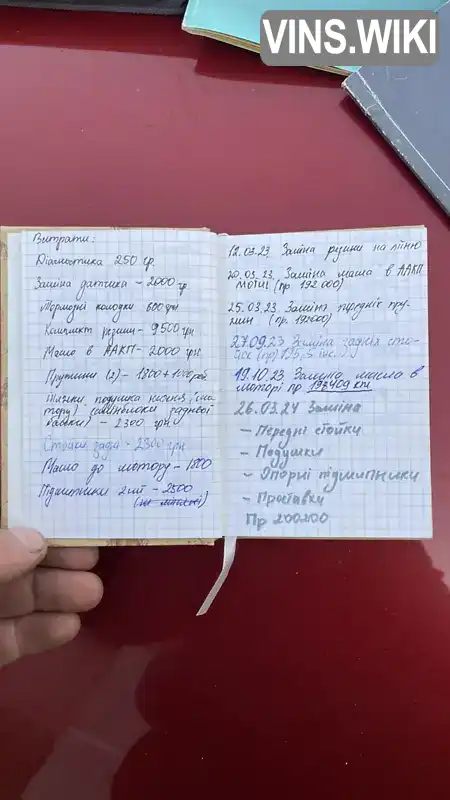 VINS.WIKI
Витрати:
Діагностика 250 гр
Заміна датчика - 2000 гр
Тормозні колодки 600 грн
Комплект резини - 9500 грн
Масло в ААКП - 2000 грн
Пружини (2) - 1800 + 1000 роб
подушка
задньої
- 2300 грн
Стойки зади - 2300 грн
Масло до мотору - 1800
Підшипники 2 шт - 2500
12.03.23 Заміна резини на літню
20.03.23 Заміна масла в ААКП
моті (пр 192 000)
25.03.23 Заміна передніх пру-
жин (пр. 192000)
27.09.23 Заміна задніх сто-
йок (пр) 195,5 тис.
19.10.23 Заміна масла в
моторі пр 198409 км
26.03.24 Заміна
- Передні стойки
- Подушки
- Опорні підшипники
- Проставки
Пр 200200